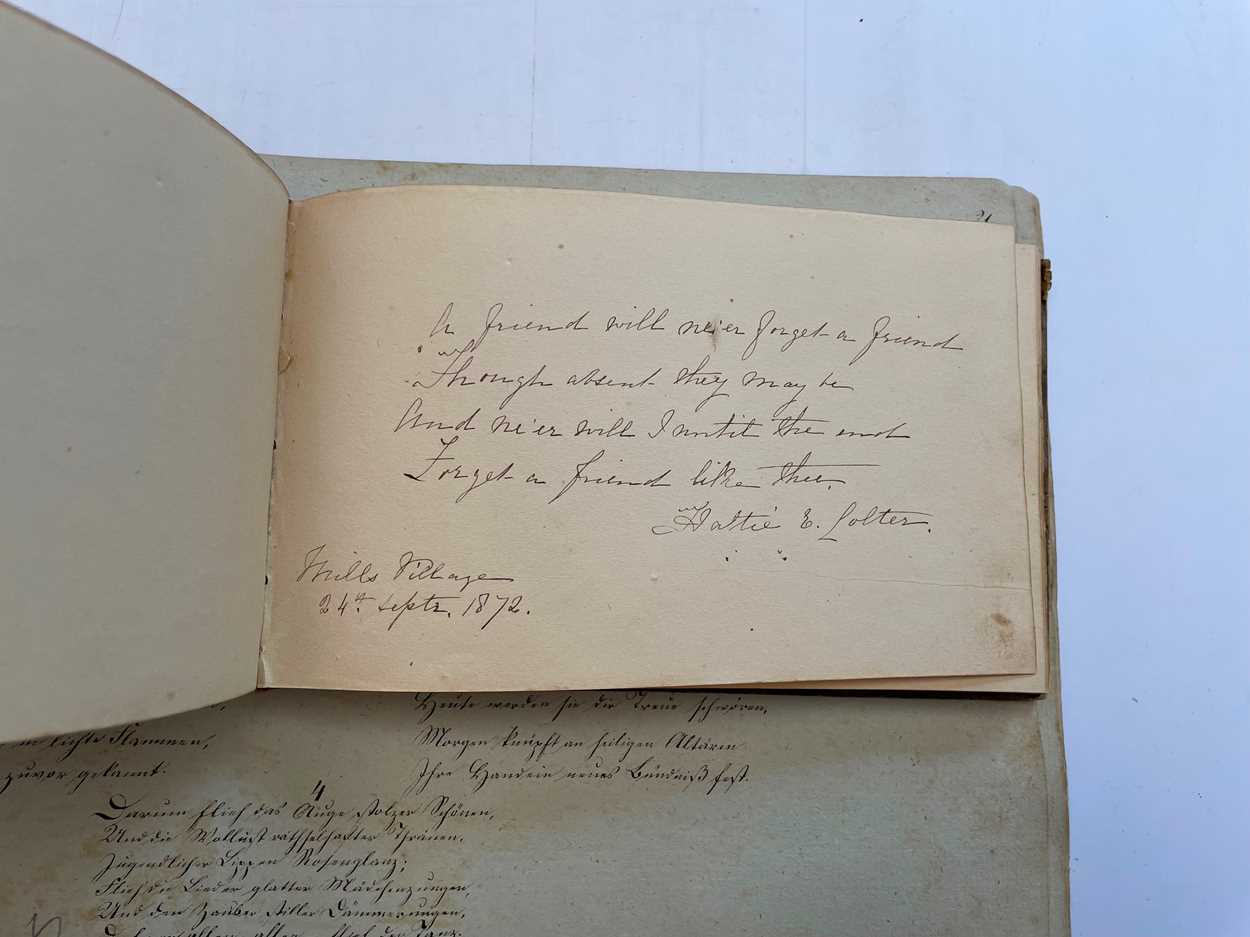 A friend will ne'er forget a friend
Though absent they may be
And ne'er will I until the end
Forget a friend like thee.
Hattie E. Colter.
Mills Village
24th Septr. 1872.
Heute werden sie dir Treue schwören,
Morgen knüpft an heiligen Altären
Ihre Hand ein neues Bündniß fest.
lichte Flammen,
zuvor gekannt.
4
Darum flieh das Auge stolzer Schönen,
Und die Wollust räthselhafter Thränen,
Jugendlicher Lippen Rosenglanz;
Flieh die Lieder glatter Mädchenzungen,
Und den Zauber stiller Dämmerungen,